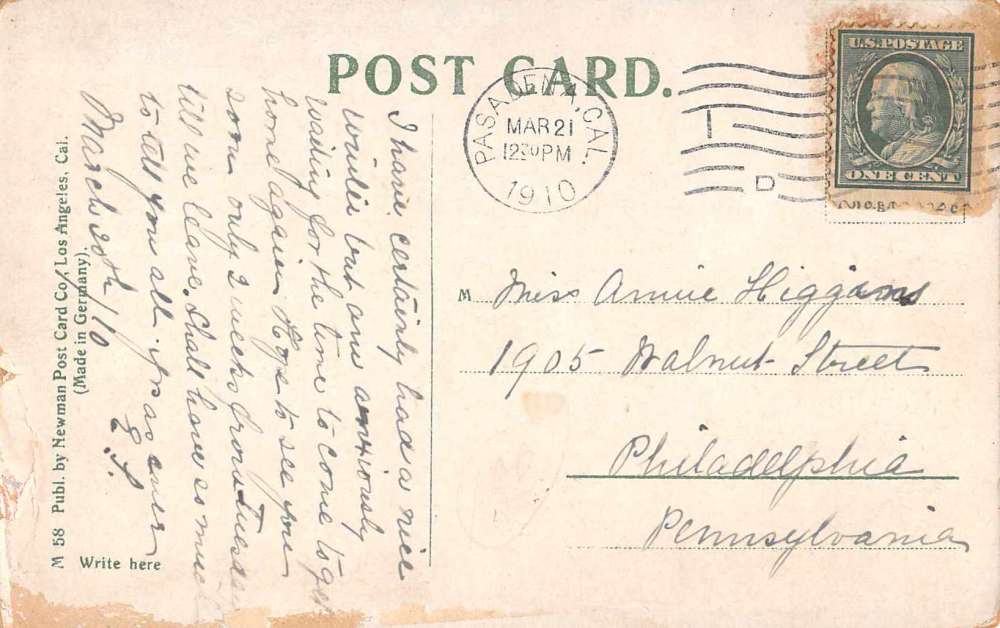 POST CARD.
PASADENA, CAL.
MAR 21
12 30 PM
1910
D
U.S. POSTAGE
ONE CENT
M Miss Annie Higgans
1905 Walnut Street
Philadelphia
Pennsylvania
I have certainly had a nice
winter but am anxiously
waiting for the time to come to get
home again Hope to see you
soon only 2 weeks from tuesday
till we leave. Shall have so much
to tell you all. as ever
E.
March 20th/10
M 58 Publ. by Newman Post Card Co., Los Angeles, Cal.
(Made in Germany).
Write here